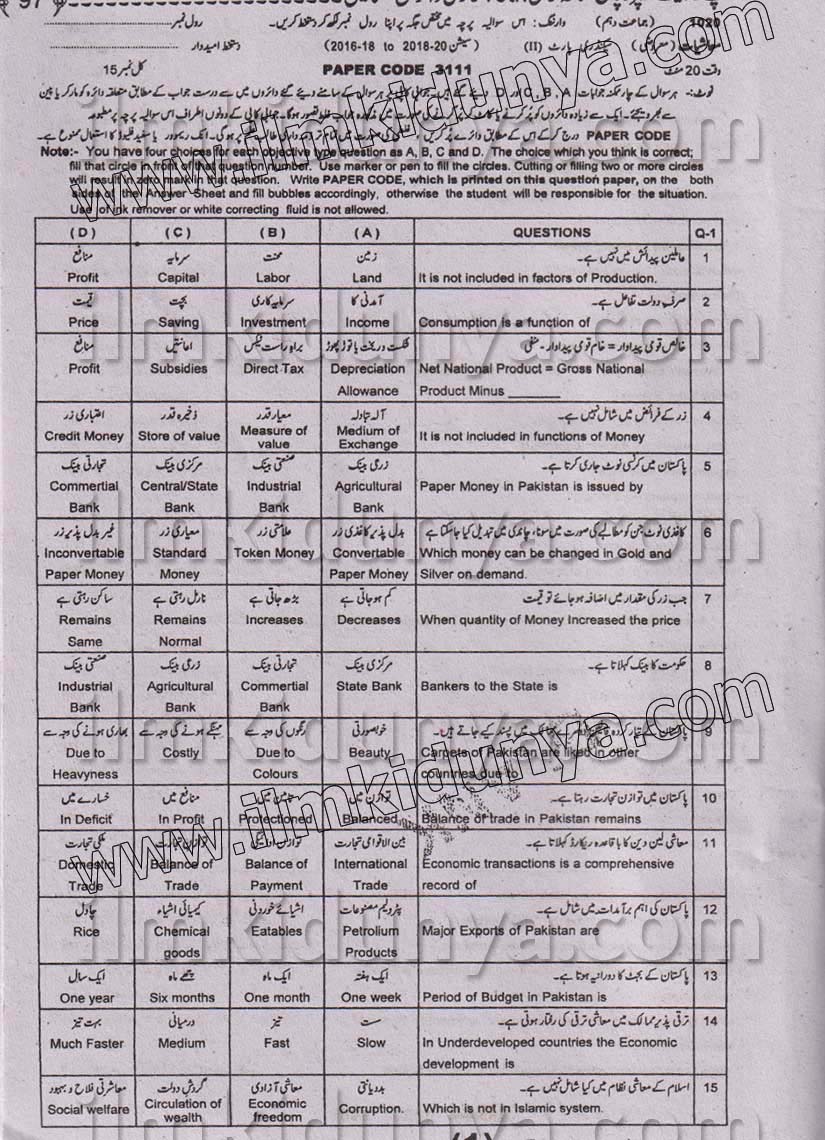 1020 (جماعت دہم) وارننگ: اس سوالیہ پرچہ میں مختص جگہ پر اپنا رول نمبر لکھ کر دستخط کریں۔ رول نمبر
معاشیات (معروضی) سیکنڈری پارٹ (II) (سیشن 2018-20 to 2016-18) دستخط امیدوار
وقت 20 منٹ PAPER CODE 3111 کل نمبر 15
PAPER CODE درج کر کے اس کے مطابق دائرے پُر کریں۔
Note:- You have four choices for each objective type question as A, B, C and D. The choice which you think is correct;
fill that circle in front of that question number. Use marker or pen to fill the circles. Cutting or filling two or more circles
will result in zero mark in that question. Write PAPER CODE, which is printed on this question paper, on the both
sides of the Answer Sheet and fill bubbles accordingly, otherwise the student will be responsible for the situation.
Use of ink remover or white correcting fluid is not allowed.
( D ) ( C ) ( B ) ( A ) QUESTIONS Q-1
منافع سرمایہ محنت زمین عاملین پیدائش میں نہیں ہے۔ 1
Profit Capital Labor Land It is not included in factors of Production.
قیمت بچت سرمایہ کاری آمدنی کا صرف دولت تفاعل ہے۔ 2
Price Saving Investment Income Consumption is a function of
منافع اعانتیں براہ راست ٹیکس شکست و ریخت یا توڑ پھوڑ خالص قومی پیداوار = خام قومی پیداوار۔ منفی 3
Profit Subsidies Direct Tax Depreciation Net National Product = Gross National
Allowance Product Minus _______
اعتباری زر ذخیرہ قدر معیار قدر آلہ تبادلہ زر کے فرائض میں شامل نہیں ہے۔ 4
Credit Money Store of value Measure of value Medium of Exchange It is not included in functions of Money
تجارتی بینک مرکزی بینک صنعتی بینک زرعی بینک پاکستان میں کرنسی نوٹ جاری کرتا ہے۔ 5
Commertial Central/State Industrial Agricultural Paper Money in Pakistan is issued by
Bank Bank Bank Bank
غیر بدل پذیر زر معیاری زر علامتی زر بدل پذیر کاغذی زر کاغذی نوٹ جن کو مطالبے کی صورت میں سونا، چاندی میں تبدیل کیا جاسکتا ہے 6
Inconvertable Standard Token Money Convertable Which money can be changed in Gold and
Paper Money Money Paper Money Silver on demand.
ساکن رہتی ہے نارمل رہتی ہے بڑھ جاتی ہے کم ہو جاتی ہے جب زر کی مقدار میں اضافہ ہو جائے تو قیمت 7
Remains Remains Increases Decreases When quantity of Money Increased the price
Same Normal
صنعتی بینک زرعی بینک تجارتی بینک مرکزی بینک حکومت کا بینک کہلاتا ہے۔ 8
Industrial Agricultural Commertial State Bank Bankers to the State is
Bank Bank Bank
بھاری ہونے کی وجہ سے مہنگے ہونے کی وجہ سے رنگوں کی وجہ سے خوبصورتی پاکستان کے تیار کردہ میں پسند کیے جاتے ہیں۔ 9
Due to Costly Due to Beauty Carpets of Pakistan are liked in other
Heavyness Colours countries due to
خسارے میں منافع میں توازن میں پاکستان میں توازن تجارت رہتا ہے۔ 10
In Deficit In Profit Protectioned Balanced Balance of trade in Pakistan remains
ملکی تجارت توازن تجارت توازن ادائیگی بین الاقوامی تجارت معاشی لین دین کا باقاعدہ ریکارڈ کہلاتا ہے۔ 11
Domestic Balance of Balance of International Economic transactions is a comprehensive
Trade Trade Payment Trade record of
چاول کیمیائی اشیاء اشیائے خوردنی پٹرولیم مصنوعات پاکستان کی اہم برآمدات میں شامل ہے۔ 12
Rice Chemical Eatables Petrolium Major Exports of Pakistan are
goods Products
ایک سال چھے ماہ ایک ماہ ایک ہفتہ پاکستان کے بجٹ کا دورانیہ ہوتا ہے۔ 13
One year Six months One month One week Period of Budget in Pakistan is
بہت تیز درمیانی تیز سست ترقی پذیر ممالک میں معاشی ترقی کی رفتار ہوتی ہے۔ 14
Much Faster Medium Fast Slow In Underdeveloped countries the Economic
development is
معاشرتی فلاح و بہبود گردش دولت معاشی آزادی بددیانتی اسلام کے معاشی نظام میں کیا شامل نہیں ہے۔ 15
Social welfare Circulation of wealth Economic freedom Corruption. Which is not in Islamic system.
(1)
www.ilmkidunya.com
www.ilmkidunya.com
ilmkidunya.com